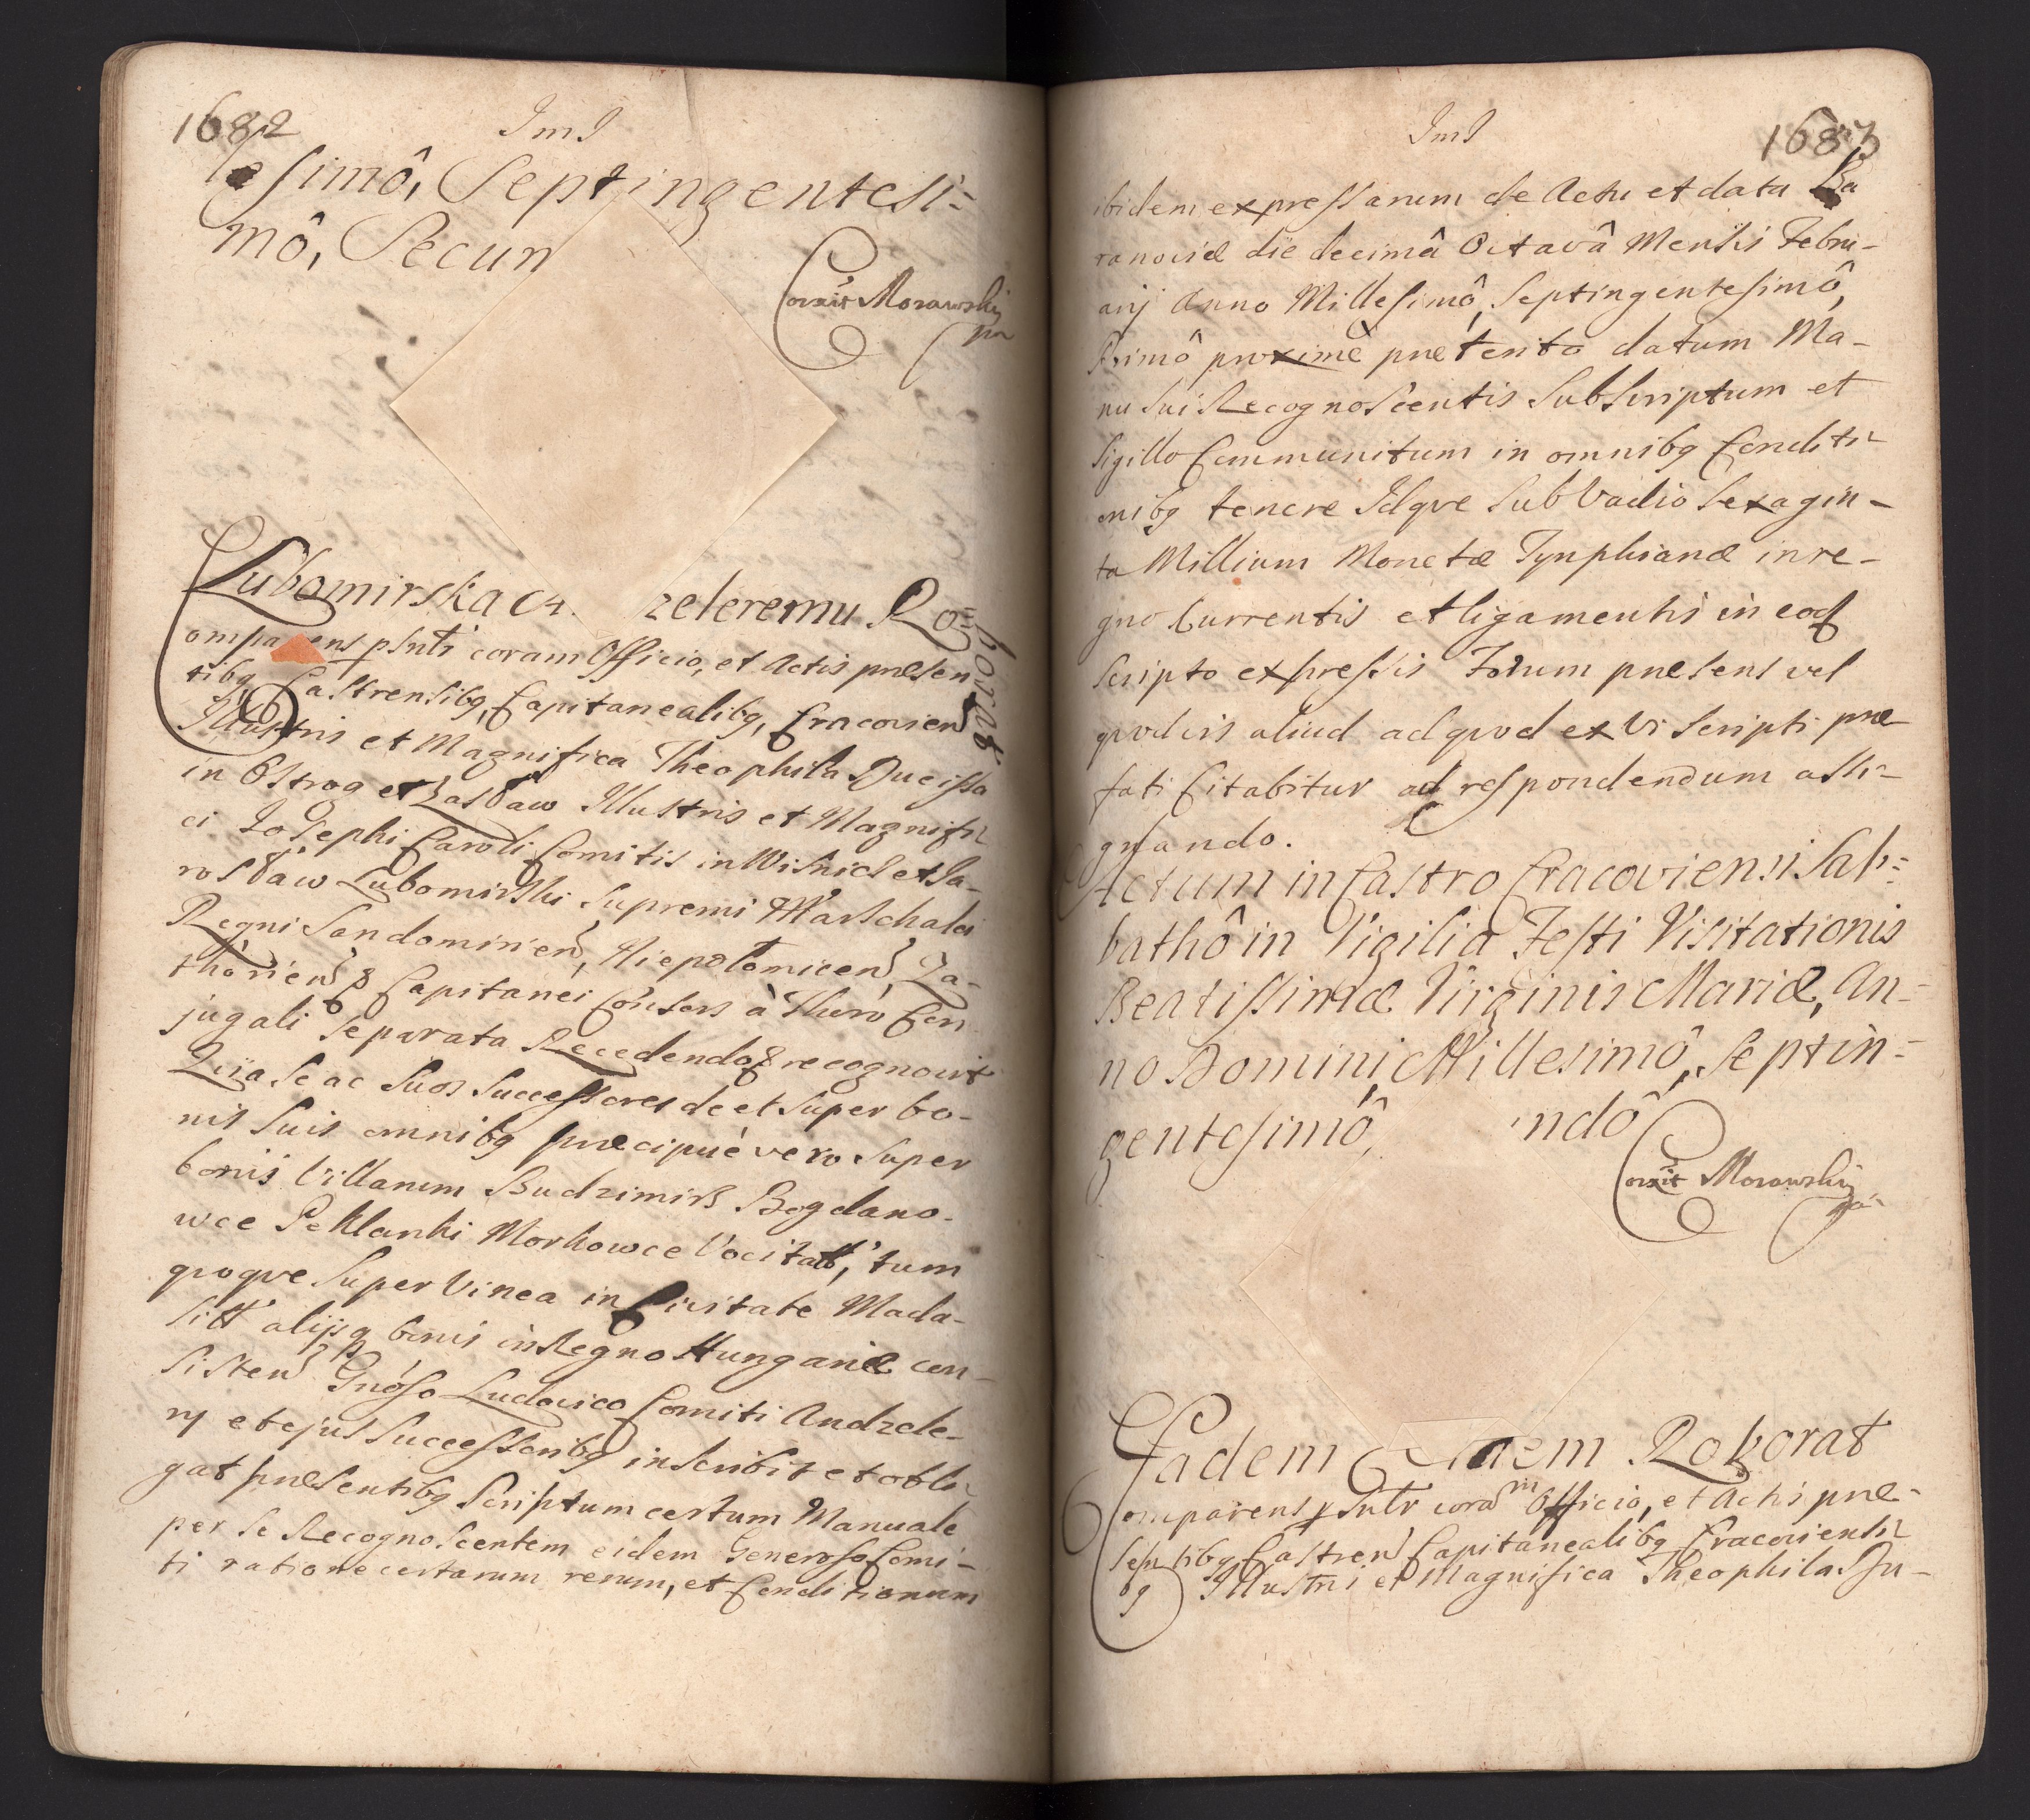 1682
Iml
lesimô, Septingentesi=
mô, Secun
Correxit Morawskj
mp
Lubomirska C zeleremu Ro=
borat
omparens psnti coram Officio, et Actis præsen
tibq Castrensibq, Capitanealibq, Cracovien
Illustris et Magnifica Theophila Ducissa
in Ostrog et Zasław Illustris et Magnifi-
ci Josephi Caroli Comitis in Wisnicz et Ja-
rosław Lubomirski Supremi Marschalci
Regni Sandomirien, Niepołomicen, Za-
thorien & Capitanei Consors à Thoro Con
jugali Separata Recedendo & recognovit
Quia se ac Suos Successores de et Super bo-
nis Suis omnibq præcipuè vero Super
bonis Villarum Budzimir Bogdano-
wce Peklanki Morkowce Vocitatt, tum
quoqve Super Vinea in Civitate Mada-
Sitt alijsq bonis in Regno Hungariæ con-
sisten Gnôso Ludovico Comiti Andzele-
ry et ejus Successoribq inscribit et obli-
gat præsentibq Scriptum certum Manuale
per se Recognoscentem eidem Generoso Comi-
ti ratione certarum rerum, et Conditionum
Iml
1683
ibidem expressarum de Actu et data Ba
ranoviæ die decimâ Octavâ Mensis Febru-
arij Anno Millesimô, Septingentesimô,
Primô proximè præterito datum Ma-
nu sui Recognoscentis Subscriptum et
Sigillo Communitum in omnibq Conditi-
onibq tenere Idqve Sub Vadio Sexagin-
ta Millium Monetæ Tynphianæ in re-
gno Currentis et ligamentis in eod
Scripto expressis Forum præsens vel
quodvis aliud ad quod ex Vi Scripti præ
fati Citabitur ad respondendum assi-
gnando.
Actum in Castro Cracoviensi Sab=
bathô in Vigilia Festi Visitationis
Beatissimæ Virginis Mariæ, An=
no Domini Millesimô, Septin=
gentesimô, ndô
Correxit Morawskj
mp
Eadem Eidem Roborat
Comparens psntr coram Officio, et Actis præ-
sentibq Castren Capitanealibq Cracoviensi
bq Illustris et Magnifica Theophila Du-